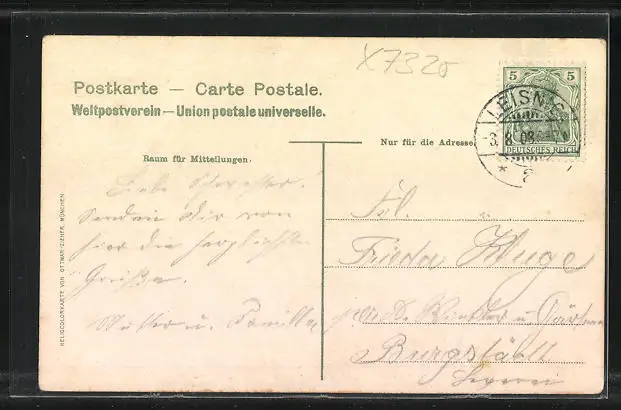 X7320
Postkarte — Carte Postale.
Weltpostverein — Union postale universelle.
5 5
LEISNIG
3.8.08
DEUTSCHES REICH
* a
Nur für die Adresse.
Raum für Mitteilungen.
Liebe Schwester.
Senden Dir von
hier die herzlichsten
Grüße.
Mutter u. Familie
Frl.
Frieda Kluge
Burgstädt
HELIOCOLORKARTE VON OTTMAR ZIEHER, MÜNCHEN